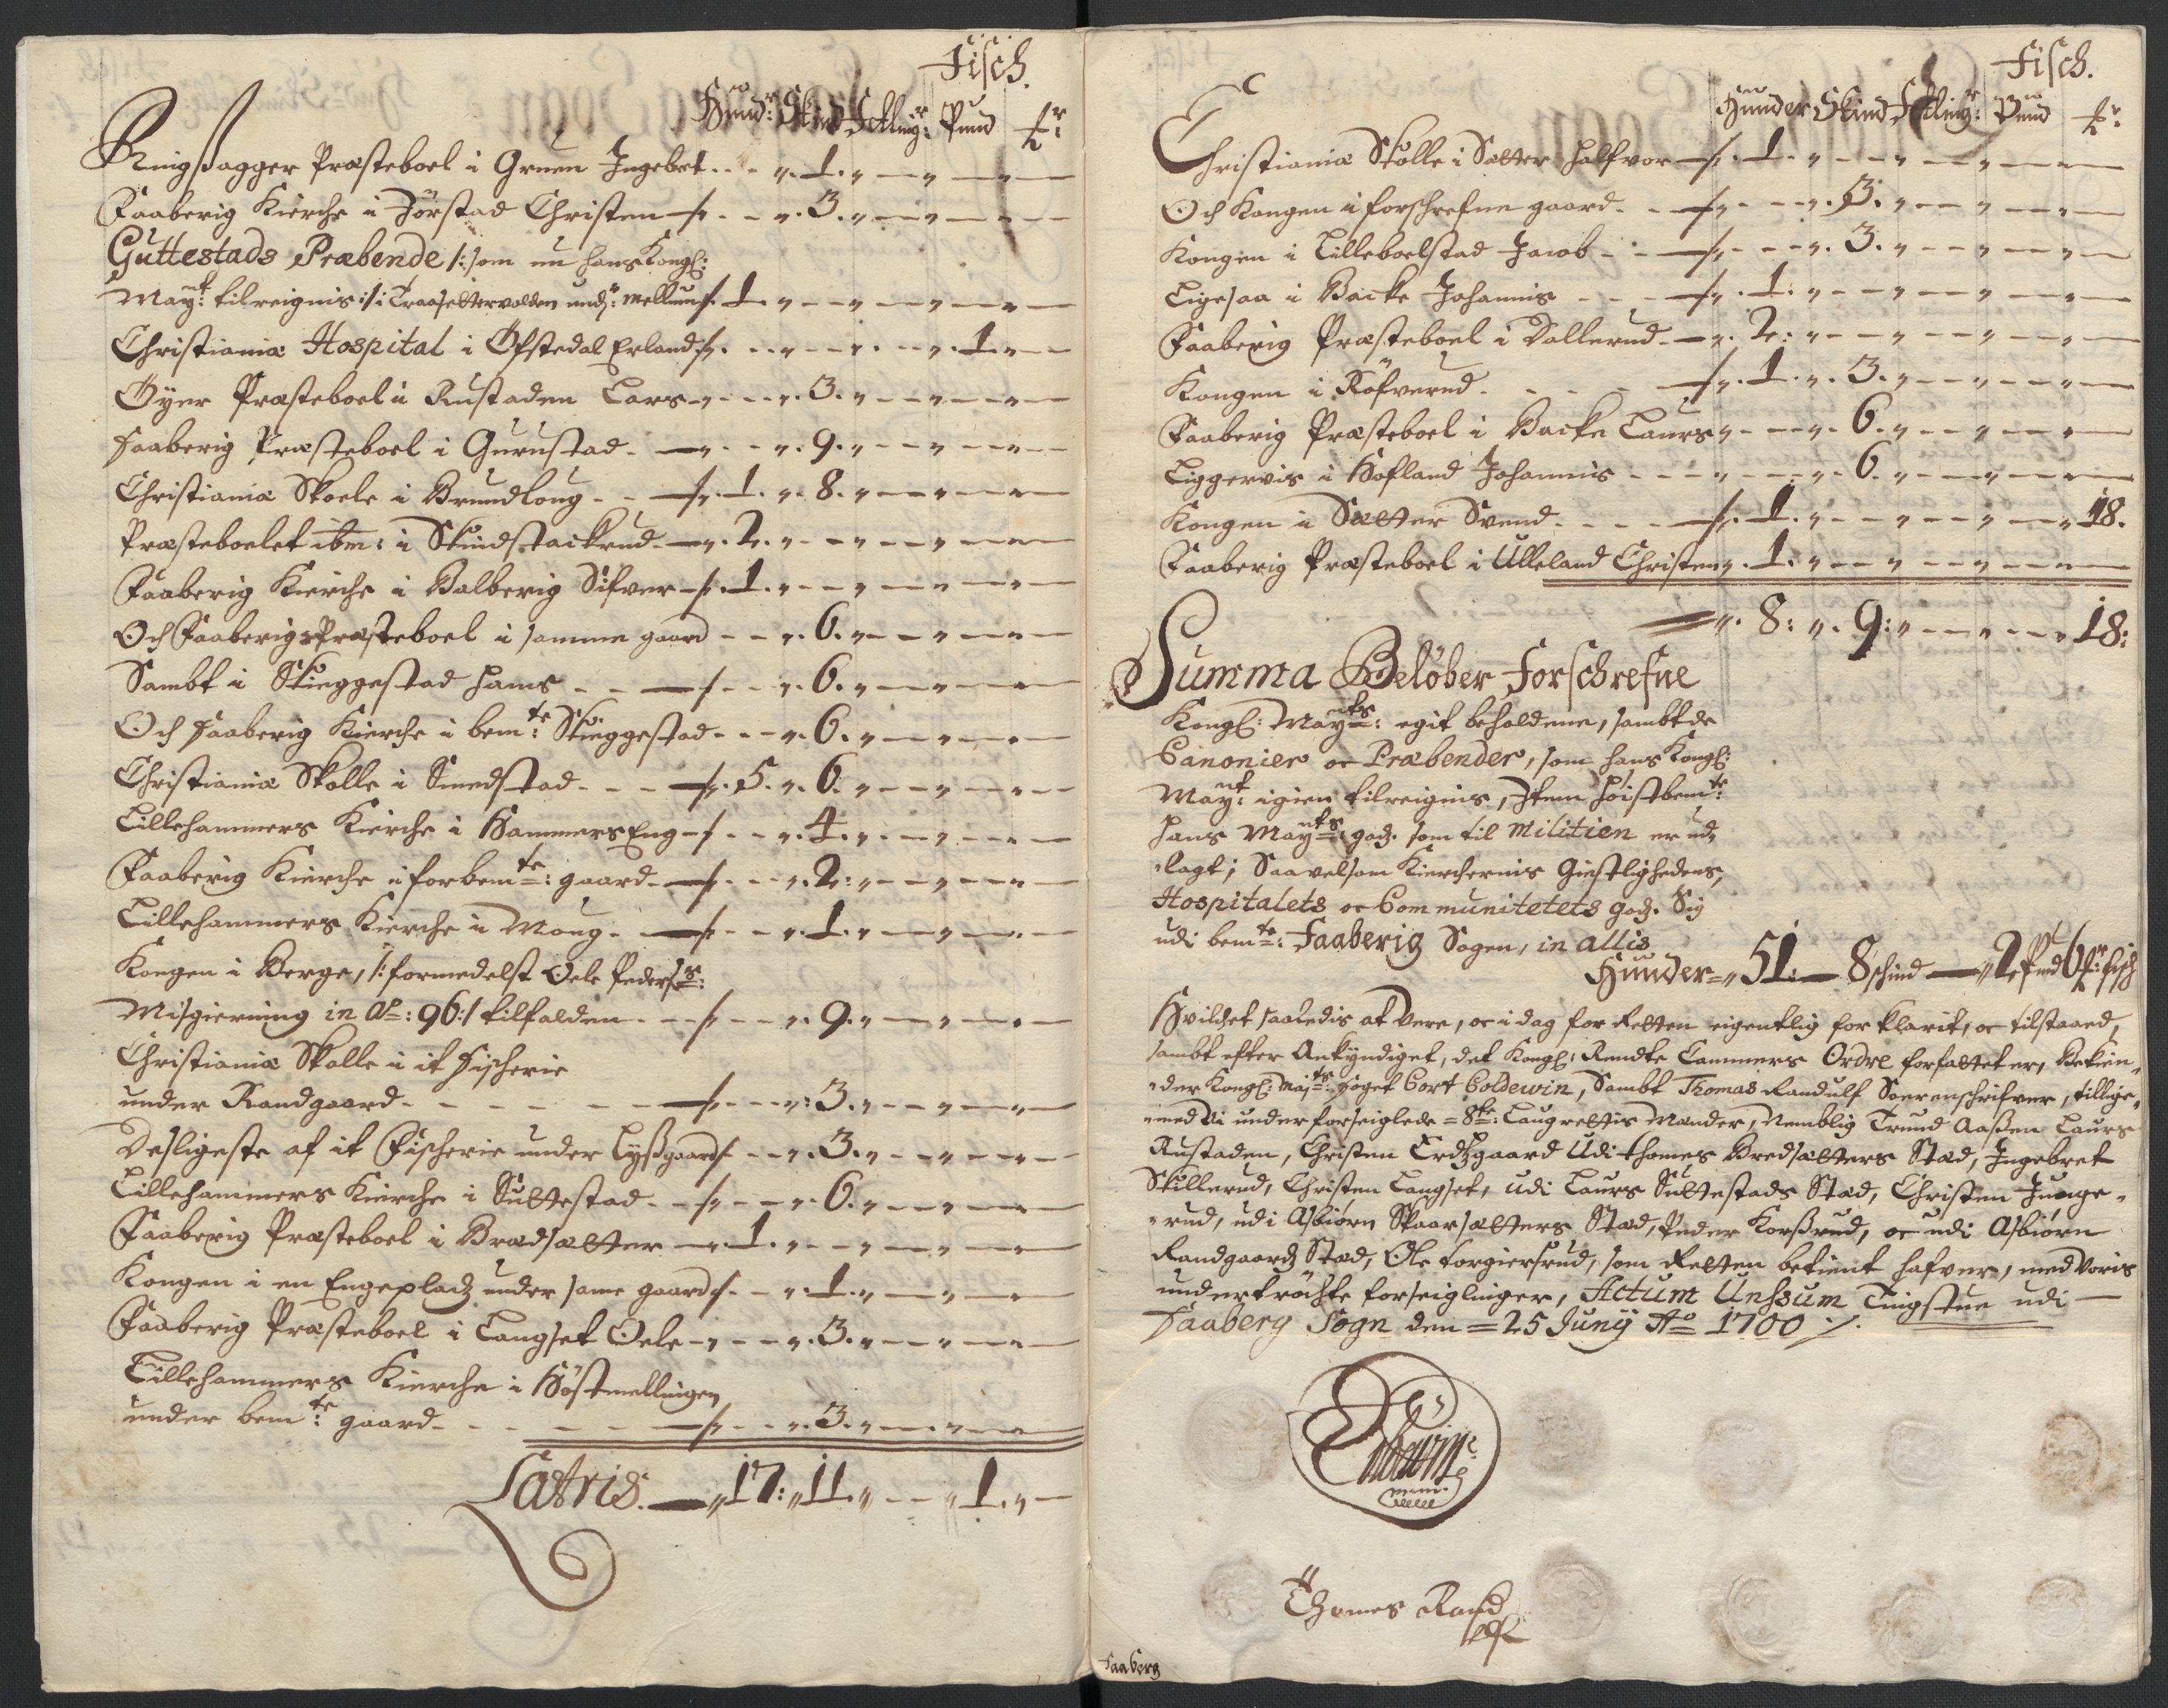 Fisch.
Hund: Skind Setting: Pund
Ringsagger Præsteboel i Gruen Ingebret - „ 1. „ — „ —
Faaberig Kierche i Jørstad Christen - „ 3. „ — „ —
Guttestads Præbende /: som nu hans Kongl:
Mayt: tilreignis :/ i Traasettervolden und: Mellum „ 1. „ — „ —
Christiania Hospital i Øfstedal Erland „ - - „ - - „ 1. „ —
Øyer Præsteboel i Rustaden Lars - „ 3. „ — „ —
Faaberig Præsteboel i Gurustad - „ 9. „ — „ —
Christiania Skoele i Brundloug - „ 1. „ 8. „ — „ —
Præsteboelet ibm: i Skindstackrud - „ 2. „ — „ —
Faaberig Kierche i Balberig Sifver - „ 1. „ — „ —
Och Faaberigs Præsteboel i samme gaard - - „ 6. „ — „ —
Sambt i Skieggestad Hans - - „ 6. „ — „ —
Och Faaberig Kierche i bemte: Skieggestad - - „ 6. „ — „ —
Christiania Skolle i Smedstad - - „ 5. „ 6. „ — „ —
Lillehammers Kierche i Hammers Eng - „ 4. „ — „ —
Faaberig Kierche i forbemte: gaard - „ 2. „ — „ —
Lillehammers Kierche i Moug - „ 1. „ — „ —
Kongen i Berge, /: formedelst Oele Peders:
Misgierning in Ao: 96 :/ tilfalden - - „ 9. „ — „ —
Christiania Skolle i it Fischerie
under Randgaard - - - „ 3. „ — „ —
Desligeste af it Fischerie under Lyßgaard „ 3. „ — „ —
Lillehammers Kierche i Suttestad - - „ 6. „ — „ —
Faaberig Præsteboel i Brædsætter - „ 1. „ — „ —
Kongen i en Engeplads under same gaard „ 1. „ — „ —
Faaberig Præsteboel i Langset Oele - „ 3. „ — „ —
Lillehammers Kierche i Høstmellingen
under bemte: gaard - - - „ 3. „ — „ —
Latris. — „ 17: „ 11. „ - - „ 1. „ —
Fisch.
Hunder Skind Setting: Pund
Christiania Skolle i Sætter Halfvor - „ 1. „ — „ —
Och Kongen i forschrefne gaard - - „ 3. „ — „ —
Kongen i Lilleboelstad Jacob - - „ 3. „ — „ —
Ligesaa i Backe Johannis - - „ 1. „ — „ —
Faaberig Præsteboel i Dallerud - „ 2. „ — „ —
Kongen i Røfverud - - „ 1. „ 3. „ — „ —
Faaberig Præsteboel i Backe Laurs „ - - „ 6. „ — „ —
Liggervis i Hofland Johannis - - „ 6. „ — „ —
Kongen i Sætter Svend - - „ 1. „ — „ — „ 18.
Faaberig Præsteboel i Ulleland Christen „ 1. „ — „ —
„ 8: „ 9: „ - - „ 18:
Summa Beløber Forschrefne
Kongl: Mayts: egit beholdene, sambt de
Canonier oc Præbender, som hans Kongl:
Mayt: igien tilreignis, Item Høistbemte:
Hans Mayts: gods. som til Militien er ud„
„lagt; Saavelsom Kierchernis Giestlighedens,
Hospitalets oc Communitetets gods. Sig
udi bemte: Faaberig Sogen, in allis
Hunder = „ 51: — 8 schind — „ 2 Pund 6 fisch
Hvilchet saaledis at Vere, oc i dag for Retten eigentlig forklarit, oc tilstaaed,
sambt efter Ankyndiget, det Kongl: Rendte Cammers Ordre forfattet er, Bekien„
„der Kongl: Majts: Foget Cort Coldewin, Sambt Thomas Randulf Soerenschrifver, tillige„
„med Vi underforseiglede = 8te: Laugrettis Mænder, Nemblig Trund Aaßen Laurs
Rustaden, Christen Erdsgaard Udi thomes Bredsætters Stæd, Ingebret
Skillerud, Christen Langset, udi Laurs Suttestads Stæd, Christen Junge„
„rud, udi Asbiørn Skaarsætters Stæd, Peder Korßrud, oc udi Asbiørn
Randgaards Stæd, Ole Torgiersrud, som Retten betient hafver, med Voris
undertrøchte forseiglinger, Actum Unßum Tingstue udi —
Faaberg Sogn den = 25 Juny Ao 1700 ./.
Thomes Randulf
Faaberg